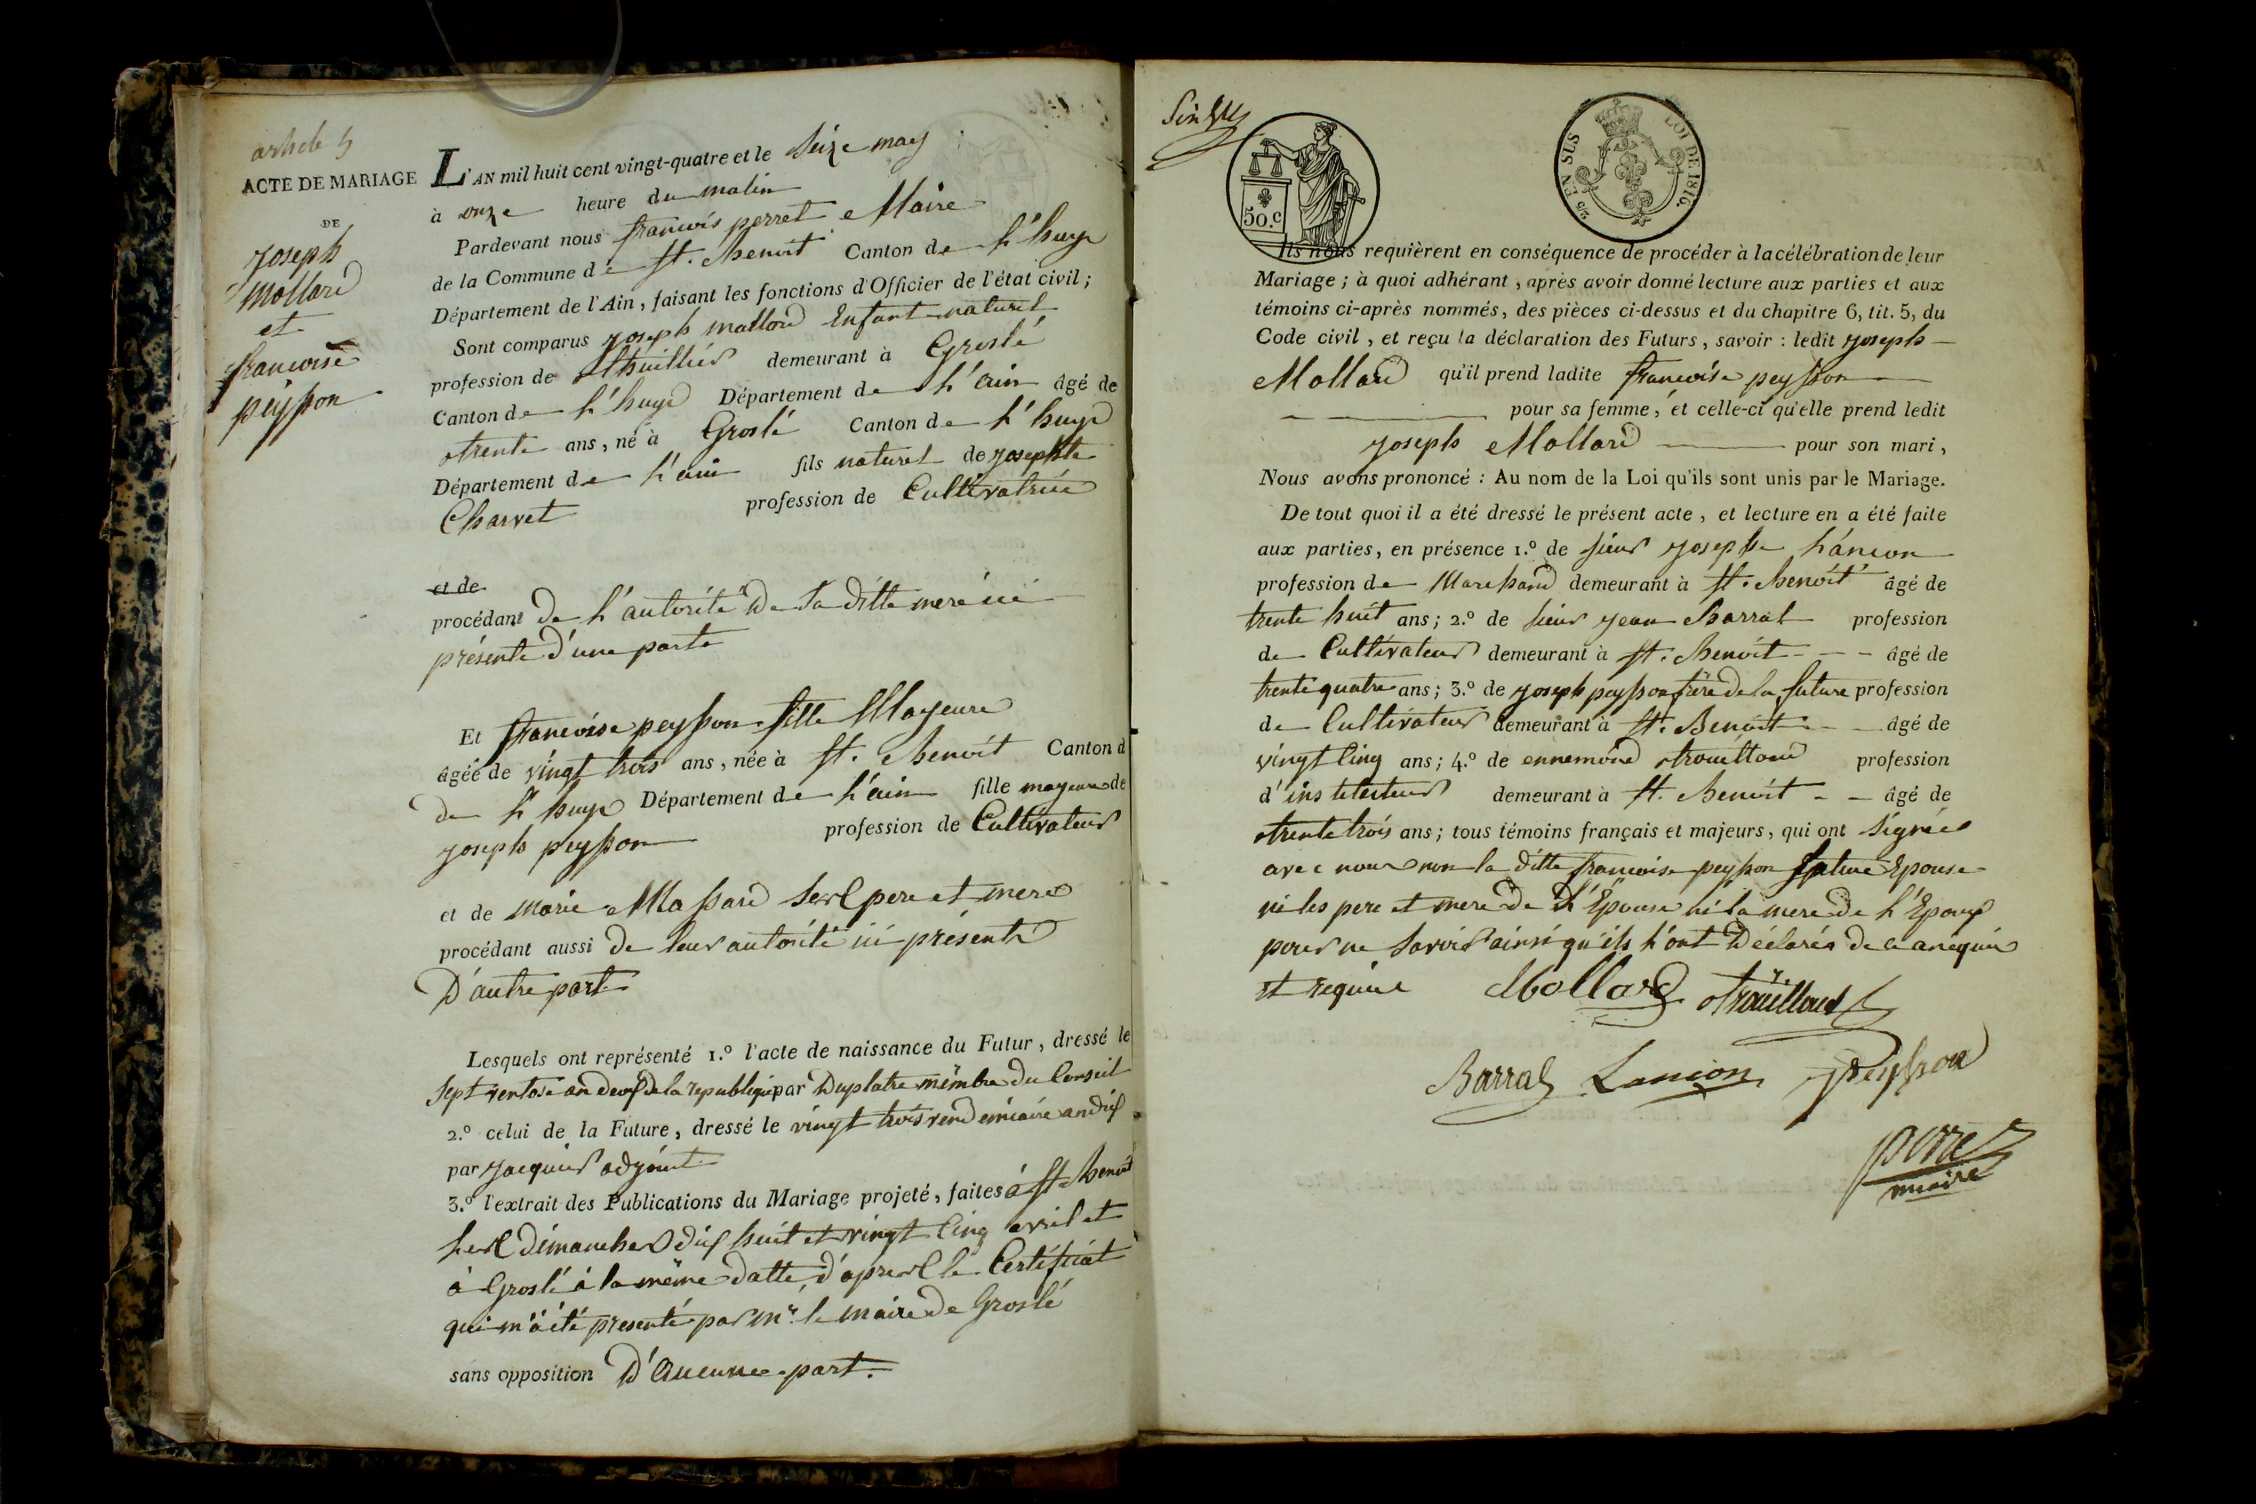 article 5
ACTE DE MARIAGE
DE
joseph
mollard
et
francoise
peysson
L'AN mil huit cent vingt-quatre et le seize may
à onze heure du matin
Pardevant nous francois perret Maire
de la Commune de st. benoit Canton de l'huys
Département de l'Ain, faisant les fonctions d'Officier de l'état civil;
Sont comparus joseph mollard Enfant naturel
profession de thuillier demeurant à Groslé
Canton de l'huys Département de l'ain âgé de
trente ans, né à Groslé Canton de l'huys
Département de l'ain fils naturel de josephte
Charvet profession de Cultivatrice
et de
procédant de l'autorité de sa ditte mere ici
présente d'une parte
Et francoise peysson fille Mayeure
âgée de vingt trois ans, née à st. benoit Canton d
de l'huys Département de l'ain fille mayeure de
joseph peysson profession de Cultivateur
et de marie Massard ses pere et mere
procédant aussi de leur autorité ici présente
D'autre part
Lesquels ont représenté 1.º l'acte de naissance du Futur, dressé le
sept ventose an deux de la republique par Duplatre membre du Conseil
2.º celui de la Future, dressé le vingt trois vendemiaire an dix
par jacquier adjoint
3.º l'extrait des Publications du Mariage projeté, faites à st benoit
les dimanches dix huit et vingt cinq avril et
à Groslé à la même datte, d'apres le Certificat
qui m'a été presenté par mr. le maire de Groslé
sans opposition D'aucune part.
50.c
EN SUS
LOI DE 1816.
Ils nous requièrent en conséquence de procéder à la célébration de leur
Mariage; à quoi adhérant, après avoir donné lecture aux parties et aux
témoins ci-après nommés, des pièces ci-dessus et du chapitre 6, tit. 5, du
Code civil, et reçu la déclaration des Futurs, savoir: ledit joseph
Mollard qu'il prend ladite francoise peysson
pour sa femme, et celle-ci qu'elle prend ledit
joseph Mollard pour son mari,
Nous avons prononcé: Au nom de la Loi qu'ils sont unis par le Mariage.
De tout quoi il a été dressé le présent acte, et lecture en a été faite
aux parties, en présence 1.º de sieur joseph lancon
profession de Marchand demeurant à st. benoit âgé de
trente huit ans; 2.º de sieur jean barral profession
de Cultivateur demeurant à st. benoit âgé de
trente quatre ans; 3.º de joseph peysson frère de la future profession
de Cultivateur demeurant à st. Benoit âgé de
vingt cinq ans; 4.º de ennemond trouilloud profession
d'instituteur demeurant à st. benoit âgé de
trente trois ans; tous témoins français et majeurs, qui ont signés
avec nous non la ditte francoise peysson future Epouse
ni les pere et mere de l'Epouse ni la mere de l'Epoux
pour ne savoir ainsi qu'ils l'ont déclarés de ce enquis
et requis Mollard Trouilloud
Barral Lancon Peysson
perret
maire